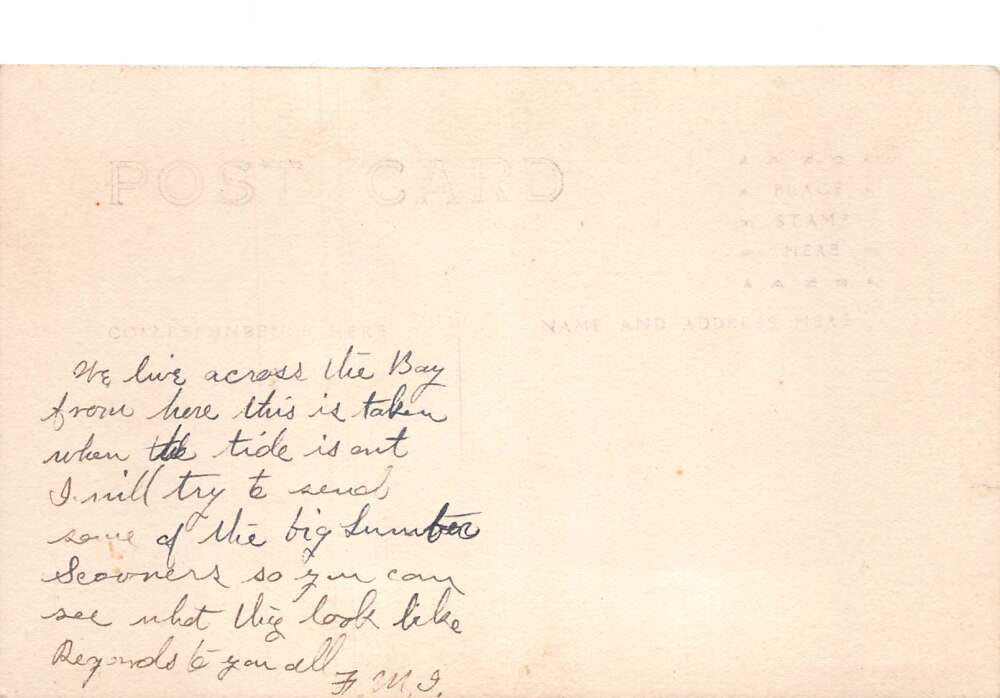 POST CARD
PLACE
STAMP
HERE
CORRESPONDENCE HERE
NAME AND ADDRESS HERE
We live across the Bay
from here this is taken
when the tide is out
I will try to send
some of the big Lumber
Scooners so you can
see what they look like
Regards to you all
F. M. I.